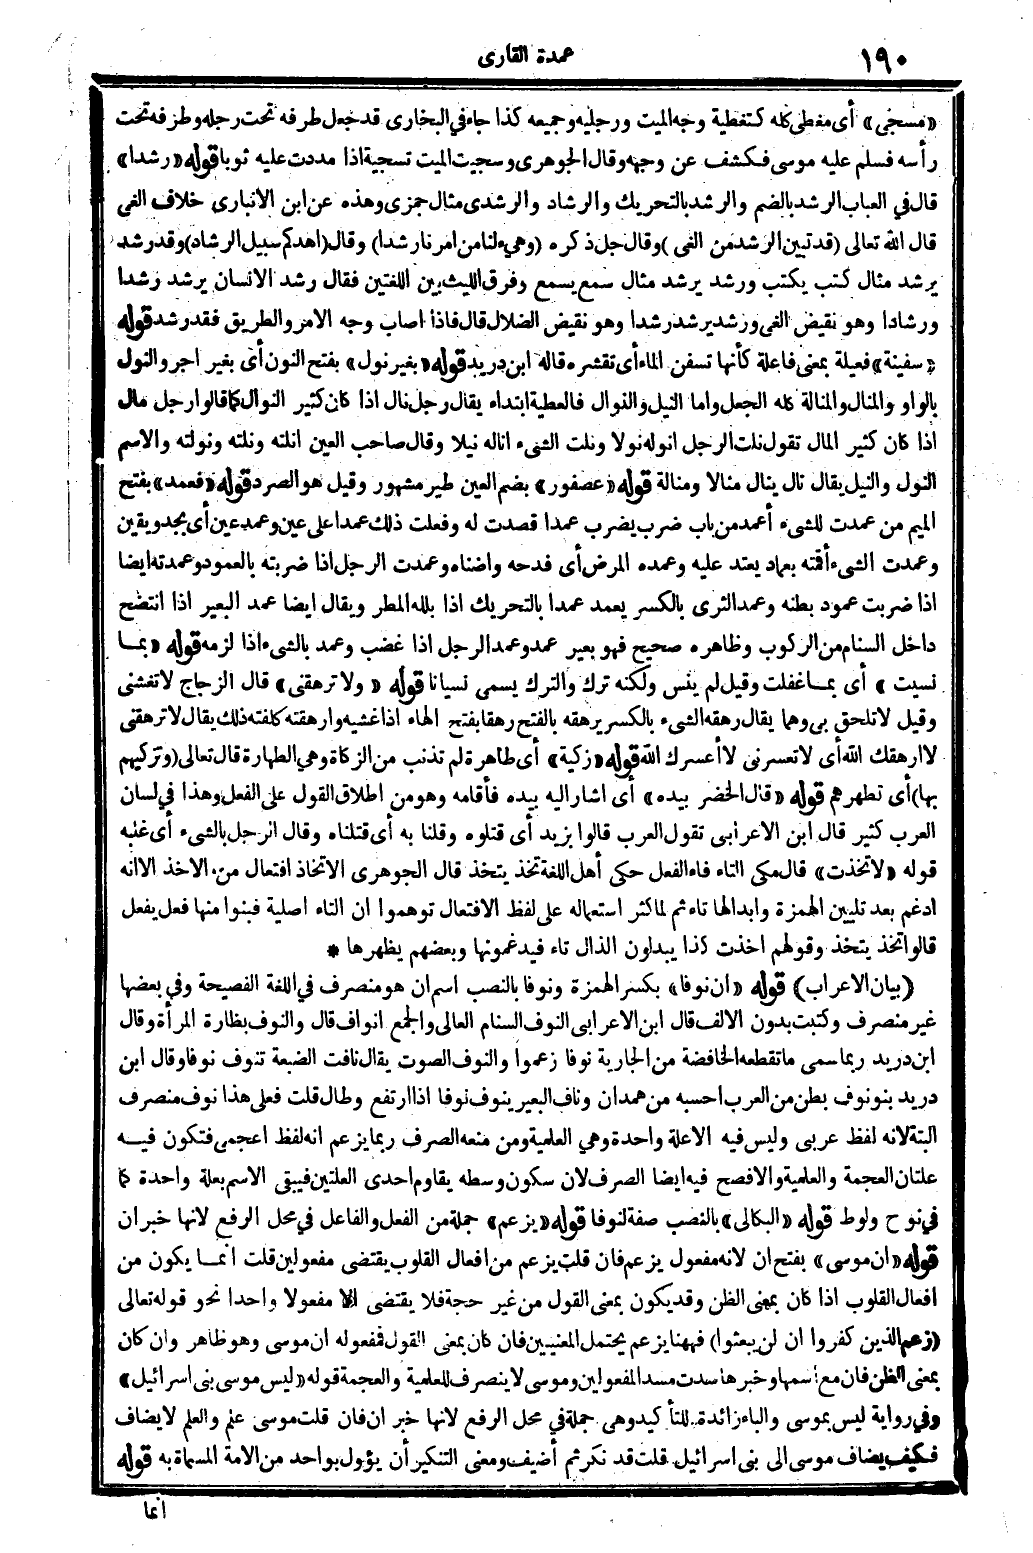 ١٩٠
عمدة القارى
«مسجى» أى مغطى كله كتغطية وجه الميت ورجليه وجميعه كذا جاء في البخارى قد جعل طرفه تحت رجله وطرفه تحت
رأسه فسلم عليه موسى فكشف عن وجهه وقال الجوهرى وسجيت الميت تسجية اذا مددت عليه ثوبا قوله «رشدا»
قال في العباب الرشد بالضم والرشد بالتحريك والرشاد والرشدى مثال جمزى وهذه عن ابن الانبارى خلاف الغى
قال الله تعالى (قد تبين الرشد من الغى) وقال جل ذكره (وهيء لنا من امرنا رشدا) وقال (اهدكم سبيل الرشاد) وقد رشد
يرشد مثال كتب يكتب ورشد يرشد مثال سمع يسمع وفرق الليث بين اللغتين فقال رشد الانسان يرشد رشدا
ورشادا وهو نقيض الغى ورشد يرشد رشدا وهو نقيض الضلال قال فاذا اصاب وجه الامر والطريق فقد رشد قوله
«سفينة» فعيلة بمعنى فاعلة كأنها تسفن الماء أى تقشره قاله ابن دريد قوله «بغير نول» بفتح النون أى بغير اجر والنول
بالواو والمنال والمنالة كله الجعل واما النيل والنوال فالعطية ابتداء يقال رجل نال اذا كان كثير النوال كما قالوا رجل مال
اذا كان كثير المال تقول نلت الرجل انوله نولا ونلت الشىء اناله نيلا وقال صاحب العين انلته ونلته ونولته والاسم
النول والنيل يقال نال ينال منالا ومنالة قوله «عصفور» بضم العين طير مشهور وقيل هو الصرد قوله «فعمد» بفتح
الميم من عمدت للشىء أعمد من باب ضرب يضرب عمدا قصدت له وفعلت ذلك عمدا على عين وعمد عين أى بجد ويقين
وعمدت الشىء أقمته بعماد يعتمد عليه وعمده المرض أى فدحه واضناه وعمدت الرجل اذا ضربته بالعمود وعمدته ايضا
اذا ضربت عمود بطنه وعمد الثرى بالكسر يعمد عمدا بالتحريك اذا بلله المطر ويقال ايضا عمد البعير اذا انتضح
داخل السنام من الركوب وظاهره صحيح فهو بعير عمد وعمد الرجل اذا غضب وعمد بالشىء اذا لزمه قوله «بما
نسيت» أى بما غفلت وقيل لم ينس ولكنه ترك والترك يسمى نسيانا قوله «ولا ترهقنى» قال الزجاج لا تغشنى
وقيل لا تلحق بى وهما يقال رهقه الشىء بالكسر يرهقه بالفتح رهقا بفتح الهاء اذا غشيه وارهقته كلفته ذلك يقال لا ترهقنى
لا ارهقك الله أى لا تعسرنى لا أعسرك الله قوله «زكية» أى طاهرة لم تذنب من الزكاة وهي الطهارة قال تعالى (وتزكيهم
بها) أى تطهرهم قوله «قال الخضر بيده» أى اشار اليه بيده فأقامه وهو من اطلاق القول على الفعل وهذا في لسان
العرب كثير قال ابن الاعرابى تقول العرب قالوا بزيد أى قتلوه وقلنا به أى قتلناه وقال الرجل بالشىء أى غلبه
قوله «لاتخذت» قال مكى التاء فاء الفعل حكى أهل اللغة تخذ يتخذ قال الجوهرى الاتخاذ افتعال من الاخذ الا انه
ادغم بعد تليين الهمزة وابدالها تاء ثم لما كثر استعماله على لفظ الافتعال توهموا ان التاء اصلية فبنوا منها فعل يفعل
قالوا تخذ يتخذ وقولهم اخذت كذا يبدلون الذال تاء فيدغمونها وبعضهم يظهرها *
(بيان الاعراب) قوله «ان نوفا» بكسر الهمزة ونوفا بالنصب اسم ان هو منصرف في اللغة الفصيحة وفي بعضها
غير منصرف وكتبت بدون الالف قال ابن الاعرابى النوف السنام العالى والجمع انواف قال والنوف بظارة المرأة وقال
ابن دريد ربما سمى ما تقطعه الخافضة من الجارية نوفا زعموا والنوف الصوت يقال نافت الضبعة تنوف نوفا وقال ابن
دريد بنو نوف بطن من العرب احسبه من همدان وناف البعير ينوف نوفا اذا ارتفع وطال قلت فعلى هذا نوف منصرف
البتة لانه لفظ عربى وليس فيه الا علة واحدة وهي العلمية ومن منعه الصرف ربما يزعم انه لفظ اعجمى فتكون فيه
علتان العجمة والعلمية والافصح فيه ايضا الصرف لان سكون وسطه يقاوم احدى العلتين فيبقى الاسم بعلة واحدة كما
في نوح ولوط قوله «البكالى» بالنصب صفة لنوفا قوله «يزعم» جملة من الفعل والفاعل في محل الرفع لانها خبر ان
قوله «ان موسى» بفتح ان لانه مفعول يزعم فان قلت يزعم من افعال القلوب يقتضى مفعولين قلت انما يكون من
افعال القلوب اذا كان بمعنى الظن وقد يكون بمعنى القول من غير حجة فلا يقتضى الا مفعولا واحدا نحو قوله تعالى
(زعم الذين كفروا ان لن يبعثوا) فههنا يزعم يحتمل المعنيين فان كان بمعنى القول فمفعوله ان موسى وهو ظاهر وان كان
بمعنى الظن فان مع اسمها وخبرها سدت مسد المفعولين وموسى لا ينصرف للعلمية والعجمة قوله «ليس موسى بنى اسرائيل»
وفي رواية ليس بموسى والباء زائدة للتأكيد وهي جملة في محل الرفع لانها خبر ان فان قلت موسى علم والعلم لا يضاف
فكيف يضاف موسى الى بنى اسرائيل قلت قد نكر ثم أضيف ومعنى التنكير أن يؤول بواحد من الامة المسماة به قوله
انما